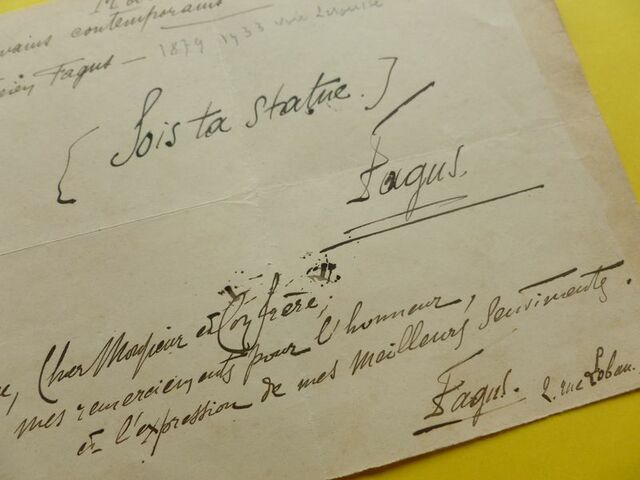 vains contemporains
ien Fagus — 1879 1933 voir Larousse
[ Sois ta statue. ]
Fagus.
Cher Monsieur et Confrère,
mes remerciements pour l'honneur,
et l'expression de mes meilleurs sentiments.
Fagus. 2. rue Lobau.